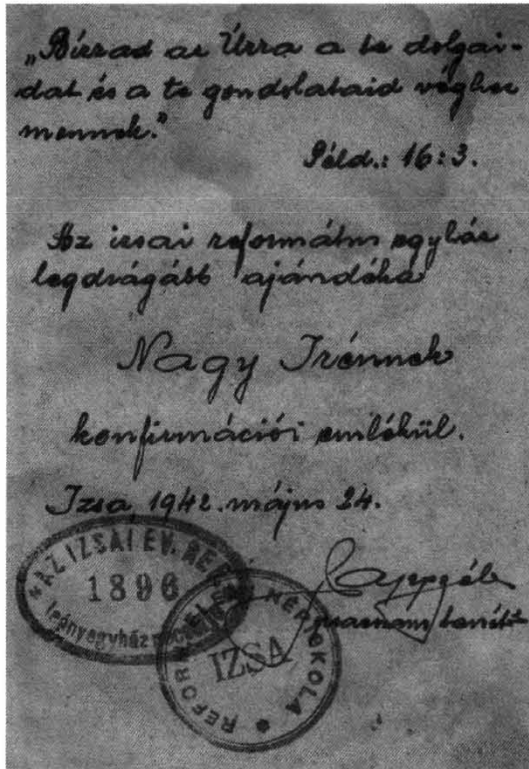 „Bízzad az Úrra a te dolgai-
dat és a te gondolataid véghez
mennek."
Péld.: 16:3.
Az izsai református egyház
legdrágább ajándéka
Nagy Irénnek
konfirmációi emlékül.
Izsa, 1942. május 24.
AZ IZSAI EV. REF.
1896
leányegyház
REFORM. ELEMI NÉPISKOLA
IZSA